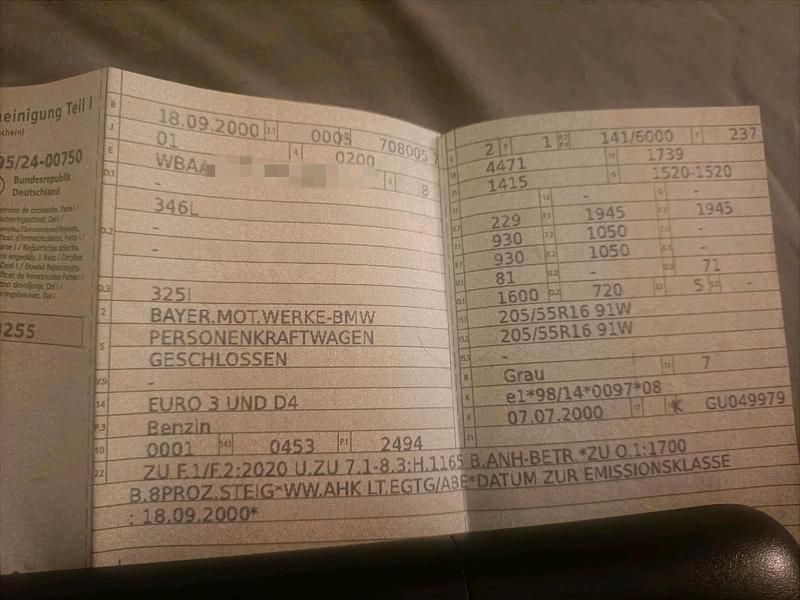 einigung Teil I
schein)
95/24-00750
Bundesrepublik
Deutschland
255
B 18.09.2000 2.1 0005 708005 7
J 01 4 0200
E WBAA 3 8
D.1 -
346L
D.2 -
-
D.3 325I
2 BAYER.MOT.WERKE-BMW
5 PERSONENKRAFTWAGEN
GESCHLOSSEN
V.9 -
14 EURO 3 UND D4
P.3 Benzin
10 0001 14.1 0453 P.1 2494
22 ZU F.1/F.2:2020 U.ZU 7.1-8.3:H.1165 B.ANH-BETR.*ZU O.1:1700
B.8PROZ.STEIG*WW.AHK LT.EGTG/ABE*DATUM ZUR EMISSIONSKLASSE
: 18.09.2000*
2 9 1 P.2 P.4 141/6000 T 237
18 4471 19 1739
20 1415 G 1520-1520
- -
229 F.1 1945 F.2 1945
7.1 930 7.2 1050 -
930 8.2 1050 -
U.1 81 - U.3 71
O.1 1600 O.2 720 S.1 5 S.2 -
15.1 205/55R16 91W
15.2 205/55R16 91W
15.3 -
R Grau 11 7
K e1*98/14*0097*08
6 07.07.2000 17 K GU049979
21